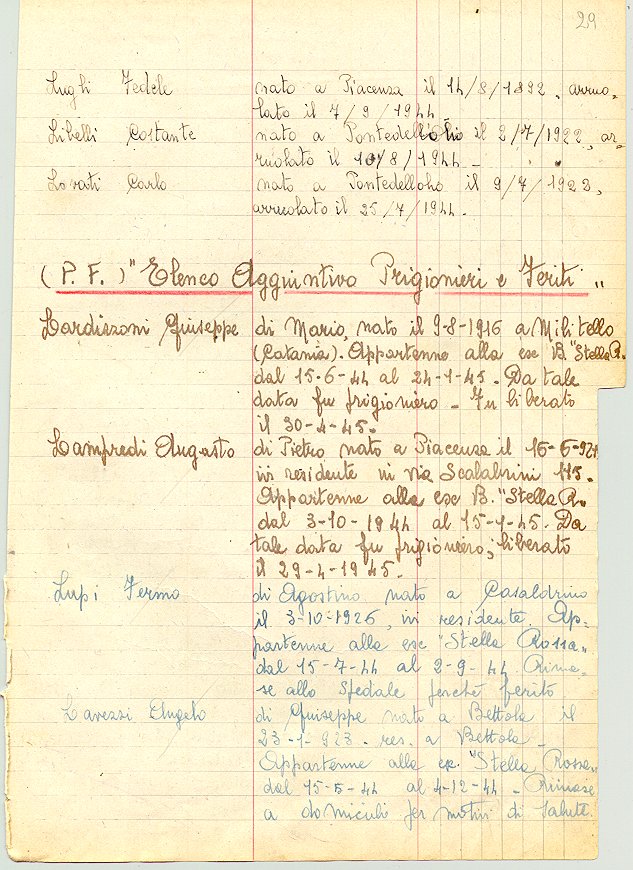 29
Lughi Fedele nato a Piacenza il 14/8/1892, arruo-
lato il 7/9/1944
Libelli Costante nato a Pontedellolio il 2/7/1922, ar-
ruolato il 10/8/1944 -
Lovati Carlo nato a Pontedellolio il 9/7/1923,
arruolato il 25/7/1944.
(P. F.) "Elenco Aggiuntivo Prigionieri e Feriti"
Lardizzoni Giuseppe di Mario, nato il 9-8-1916 a Militello
(Catania). Appartenne alla ex B. "Stella R.
dal 15-6-44 al 24-1-45. Da tale
data fu prigioniero - Fu liberato
il 30-4-45.
Lamfredi Augusto di Pietro nato a Piacenza il
ivi residente in via Scalabrini 115.
Appartenne alla ex B. "Stella R.
dal 3-10-1944 al 15-1-45. Da
tale data fu prigioniero, liberato
il 29-4-1945.
Lupi Fermo di Agostino nato a Casaldrino
il 3-10-1926, ivi residente. Ap-
partenne alla ex "Stella Rossa"
dal 15-7-44 al 2-9-44. Rima-
se allo Spedale perché ferito
Lavezzi Angelo di Giuseppe nato a Bettola il
23-1-923. res. a Bettola -
Appartenne alla ex. "Stella Rossa"
dal 15-5-44 al 4-12-44 - Rimase
a domicilio per motivi di salute.